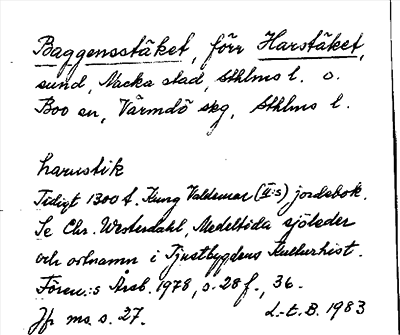 Baggensstäket, förr Harstäket,
sund, Nacka stad, Sthlms l. o.
Boo sn, Värmdö skg, Sthlms l.
harustik
Tidigt 1300 t. Kung Valdemar (II:s) jordebok.
Se Chr. Westerdahl, Medeltida sjöleder
och ortnamn i Tjustbygdens Kulturhist.
Fören.:s Årsb. 1978, s. 28 f., 36.
Jfr ms. s. 27. L.-t. B. 1983